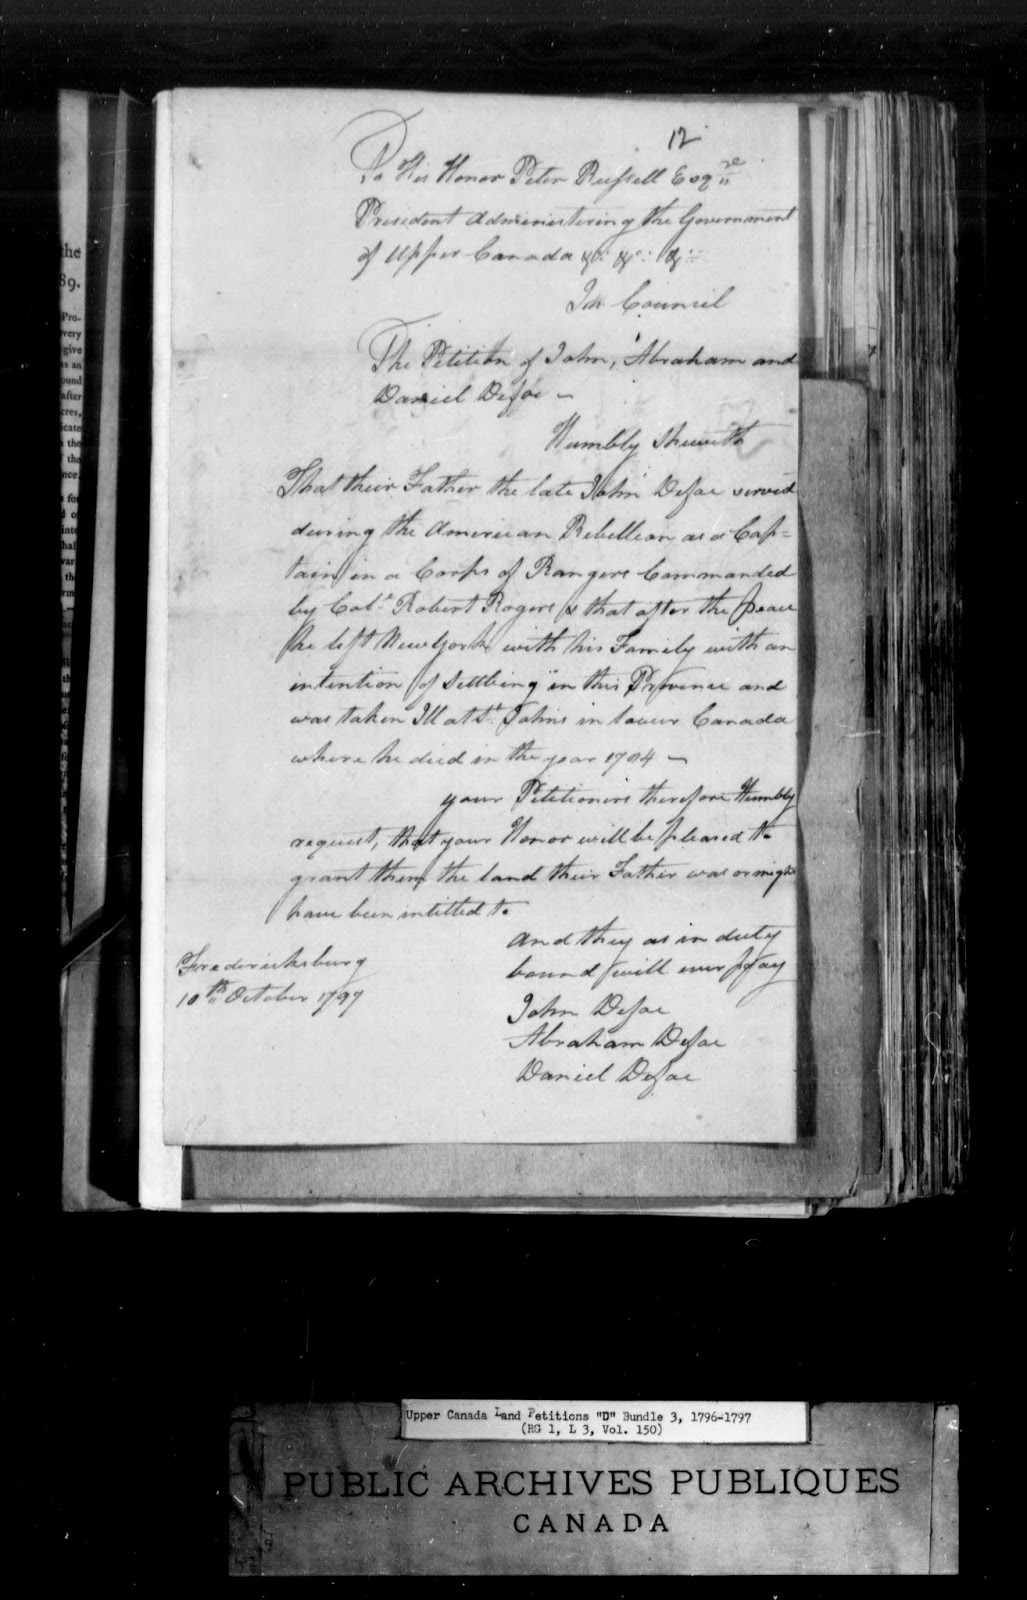 12
To His Honor Peter Russell Esqre
President Administering the Government
of Upper Canada &c: &c: &c:
In Council
The Petition of John, Abraham and
Daniel Defoe –
Humbly Sheweth
That their Father the late John Defoe served
during the American Rebellion as a Cap=
tain in a Corps of Rangers Commanded
by Colo. Robert Rogers, that after the peace
he left New York with his Family with an
intention of Settleing in this Province and
was taken Ill at St. Johns in lower Canada
where he died in the year 1794 –
your Petitioners therefore Humbly
request, that your Honor will be pleased to
grant them the land their Father was or might
have been intitled to
and they as in duty
bound will ever pray
Fredericksburg
10th October 1797
John Defoe
Abraham Defoe
Daniel Defoe
the
89.
Pro-
very
give
as an
ound
after
cres,
icate
the
the
nce.
for
Upper Canada Land Petitions "D" Bundle 3, 1796-1797
(RG 1, L 3, Vol. 150)
PUBLIC ARCHIVES PUBLIQUES
CANADA